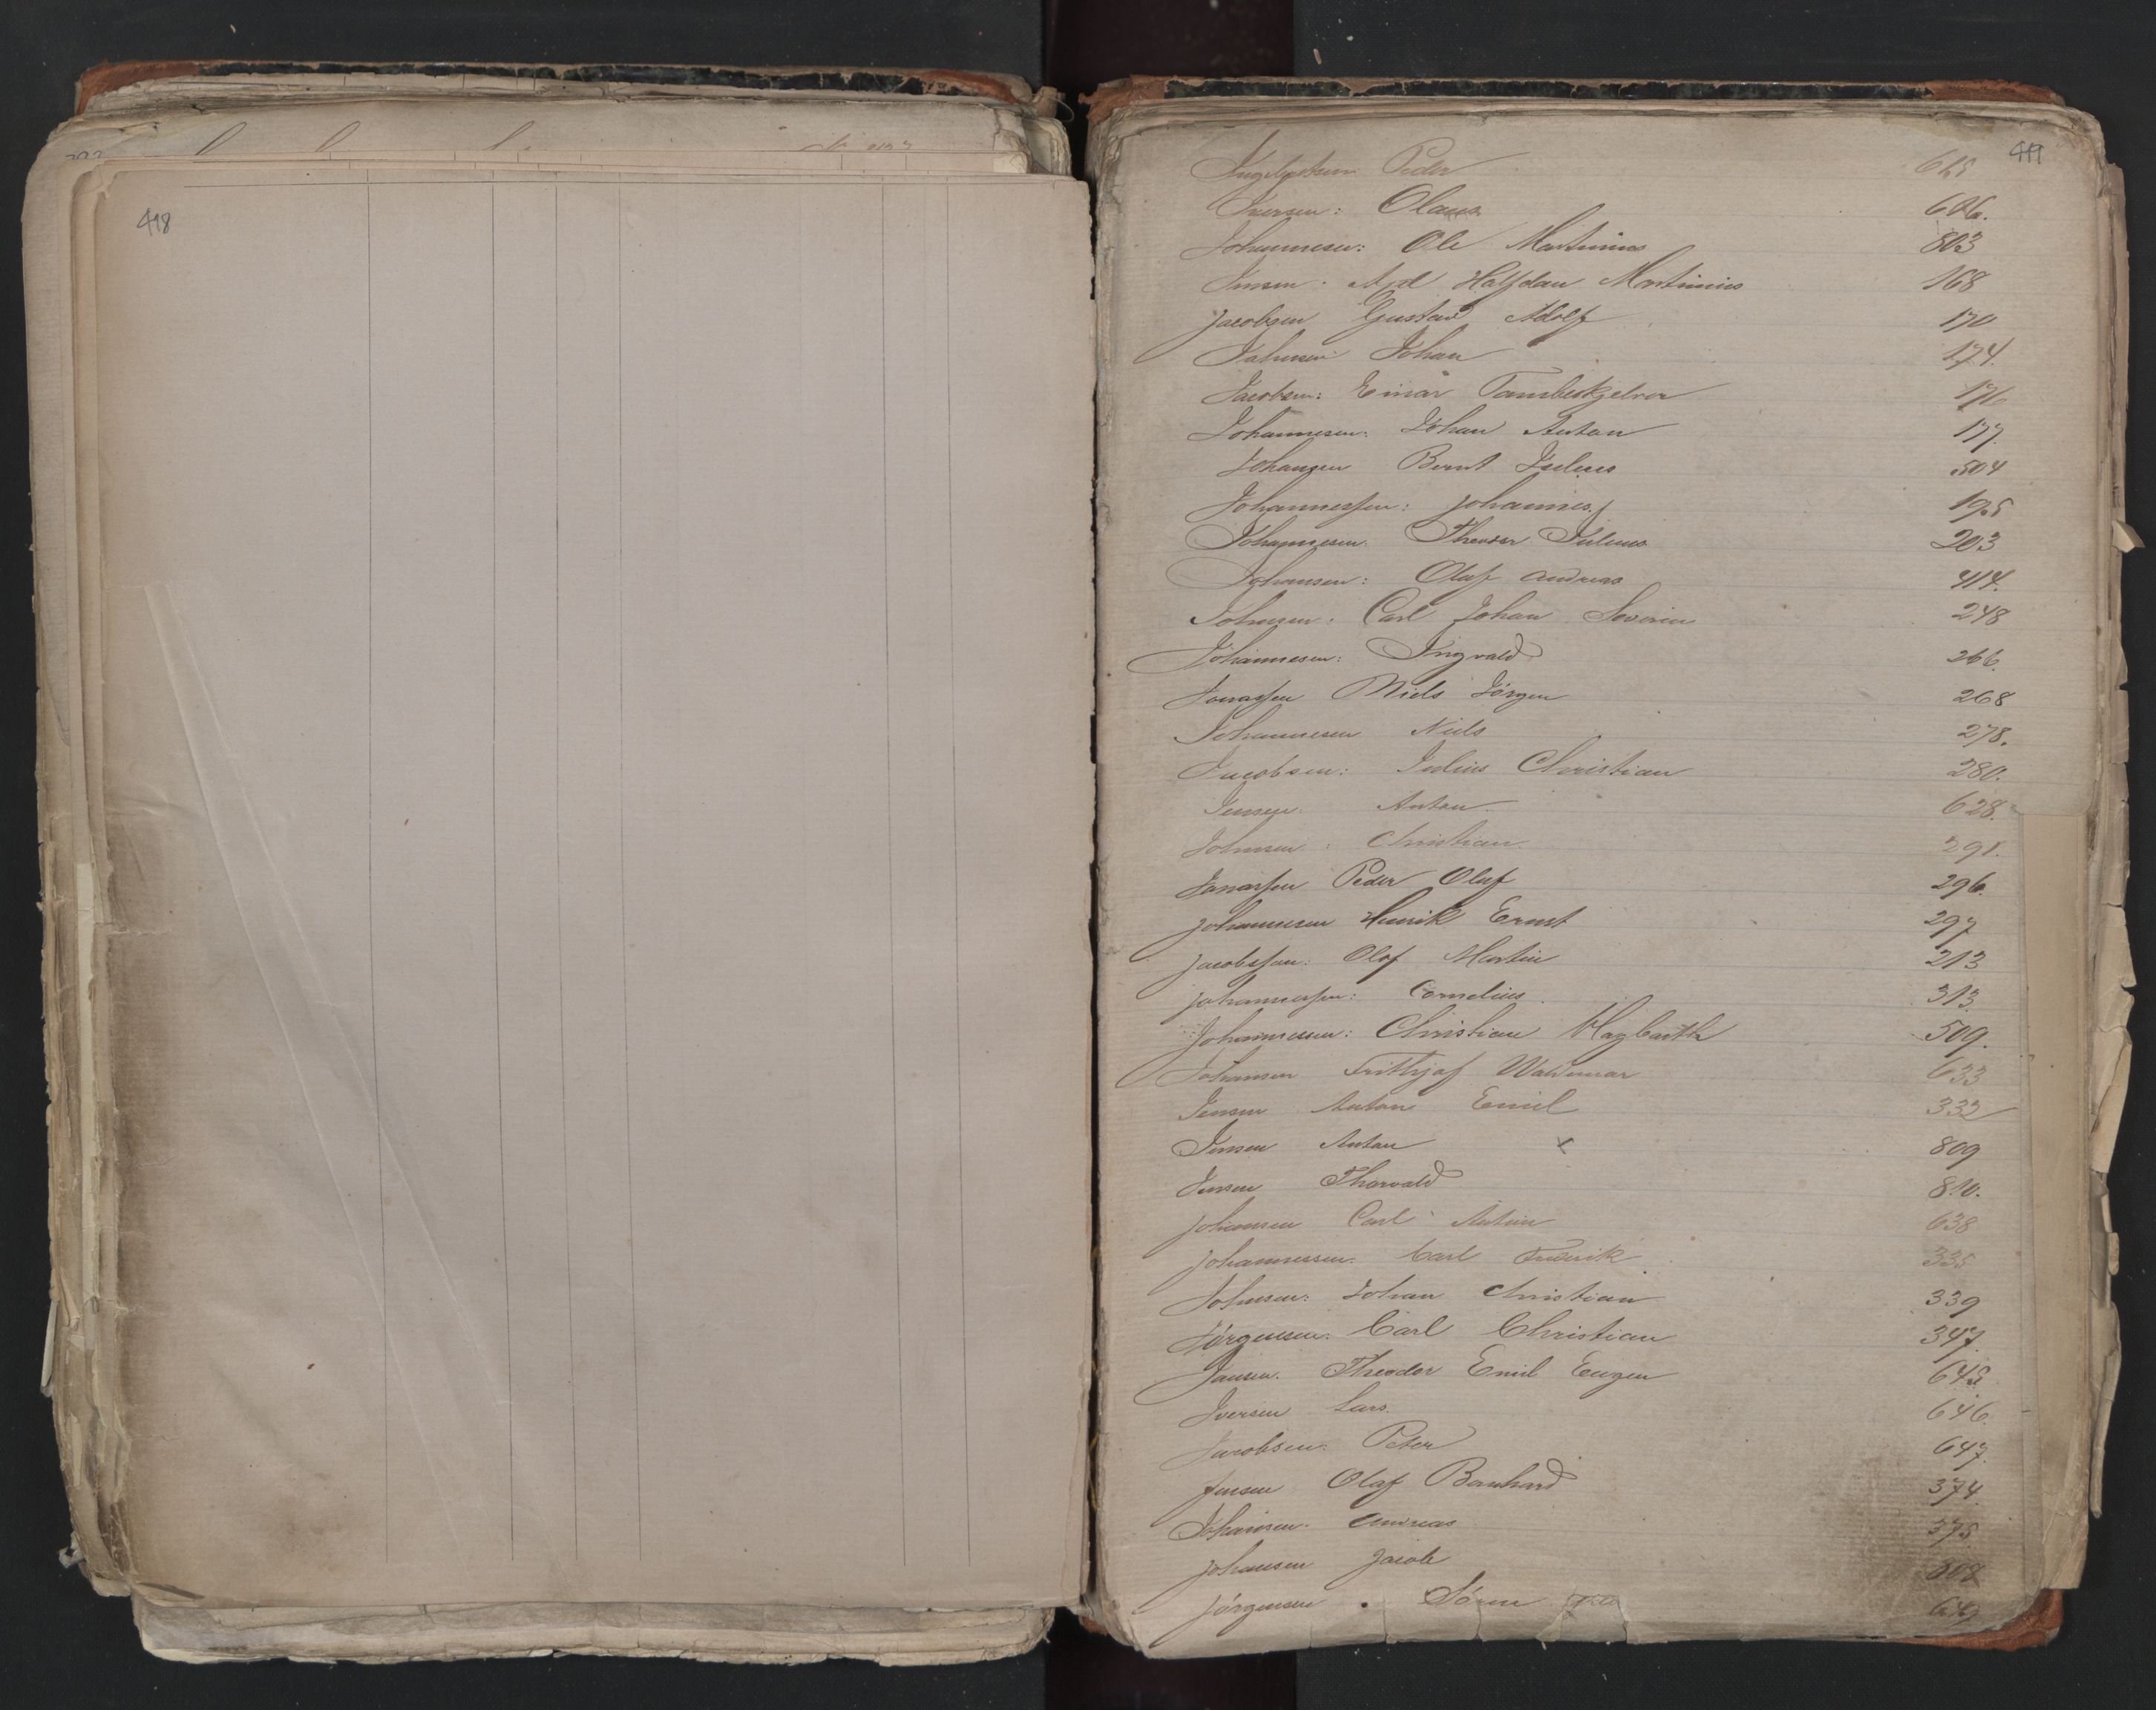 418
419
Peder 615
Iversen: Olaus 606.
Johannesen: Ole Martinius 803
Jensen: Axel Halfdan Martinius 168
Jacobsen Gustav Adolf 170
Johnsen Johan 174.
Jacobsen: Einar Tambeskjelver 176
Johannesen: Johan Anton 177.
Johansen Bernt Julius 504
Johannessen: Johannes 195
Johannesen. Theodor Julius 203
Johansen: Olaf Andreas 414.
Johnsen: Carl Johan Severin 248
Johannesen: Ingvald 266.
Jonassen Niels Jörgen 268
Johannesen Niels 278.
Jacobsen: Julius Christian 280.
Jensen. Anton 628.
Johnsen: Christian. 291.
Jonassen Peder Olaf 296.
Johannesen Henrik Ernst 297
Jacobssen: Olaf Martin 213
Johannessen: Cornelius. 313.
Johannesen: Christian Hagbarth 509.
Johansen Frithjof Waldemar 633
Jensen Anton Emil 332
Jensen Anton x 809
Jensen Thorvald 810.
Johansen Carl Anton 638
Johannessen. Carl Fredrik 335
Johnsen: Johan Christian 339
Jörgensen. Carl Christian 347.
Jansen. Theodor Emil Eugen 645
Iversen Lars. 646.
Jacobsen. Peter 647.
Jensen Olaf Bernhard 374.
Johansen. Andreas 375
Johansen Jacob 508
Jörgensen. Sören 649